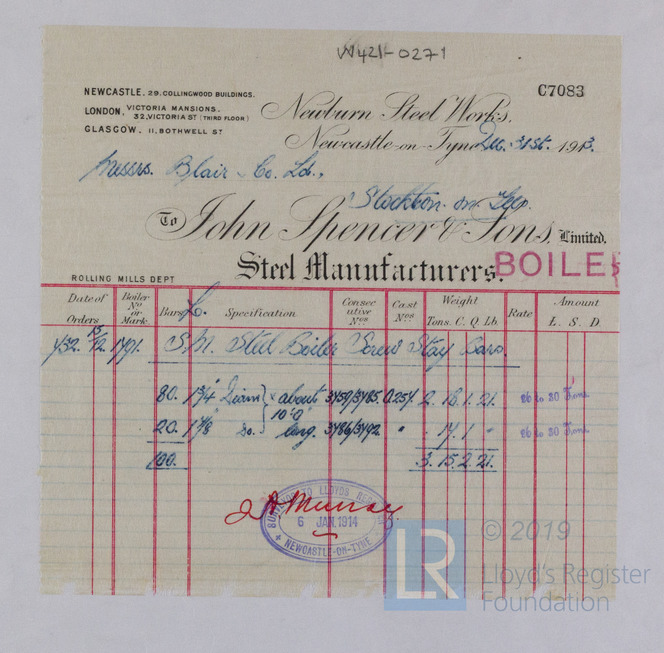 W421-0271
C7083
NEWCASTLE. 29. COLLINGWOOD BUILDINGS.
LONDON, VICTORIA MANSIONS.
32, VICTORIA ST (THIRD FLOOR)
GLASGOW. 11, BOTHWELL ST
Newburn Steel Works.
Newcastle-on-Tyne Dec. 31st. 1913.
Messrs. Blair & Co. Ld.,
Stockton. on. Tees.
To John Spencer & Sons, Limited.
Steel Manufacturers.
BOILER
ROLLING MILLS DEPT
Date of Orders Boiler No or Mark. Bars Specification Consecutive Nos Cast Nos Weight Tons. C. Q. Lb. Rate Amount L. S. D.
432. 15/12 1791. S.M. Steel Boiler Screw Stay Bars.
80. 1¾" Diam about 3459/3485 0254 2. 18. 1. 21. 26 to 30 Tons
10'0"
20. 1⅞" Do. long. 3486/3492 " . 17. 1 " 26 to 30 Tons
100. 3. 15. 2. 21.
SURVEYOR TO LLOYDS REGISTER
6 JAN. 1914
NEWCASTLE-ON-TYNE
Murray
LR
© 2019
Lloyd's Register
Foundation